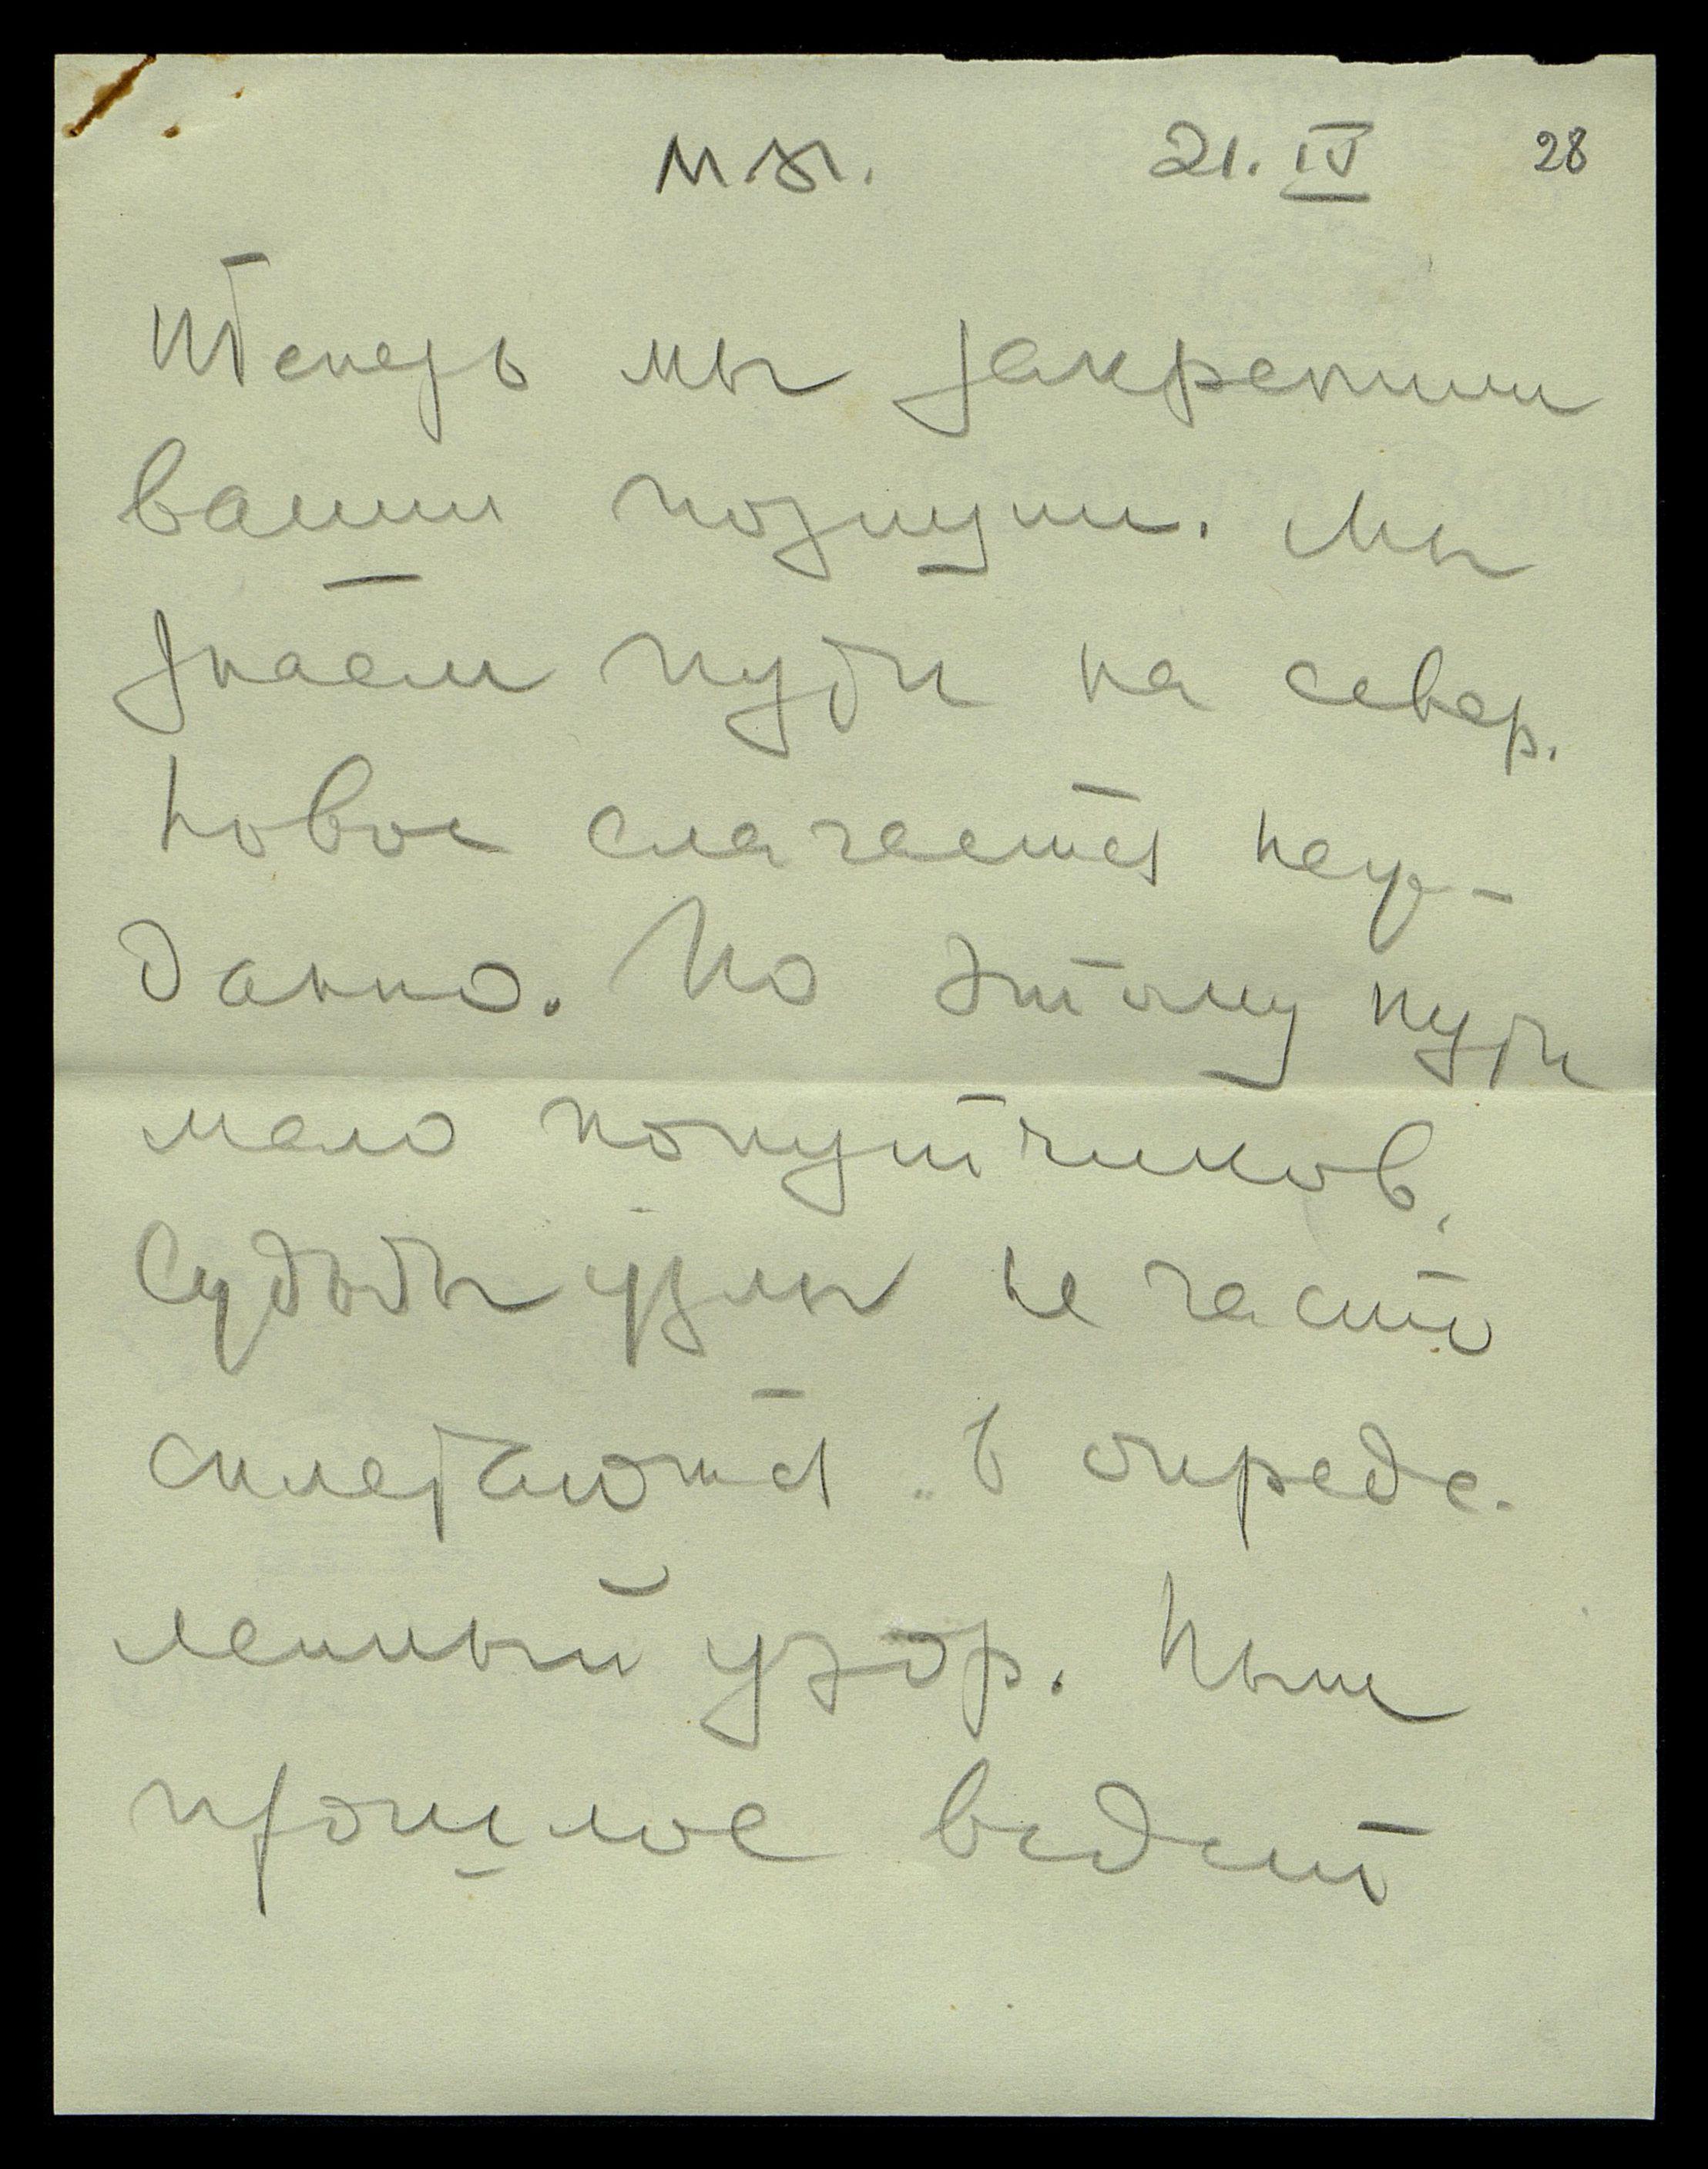 М.Я. 21.IV 28
Теперь мы закрепим
ваши позиции. Мы
знаем пути на север.
Новое слагается неус-
данно. По этому пути
мало попутчиков.
Судьбы узлы не часто
сплетаются в опреде-
ленный узор. Ныне
прошлое ведет